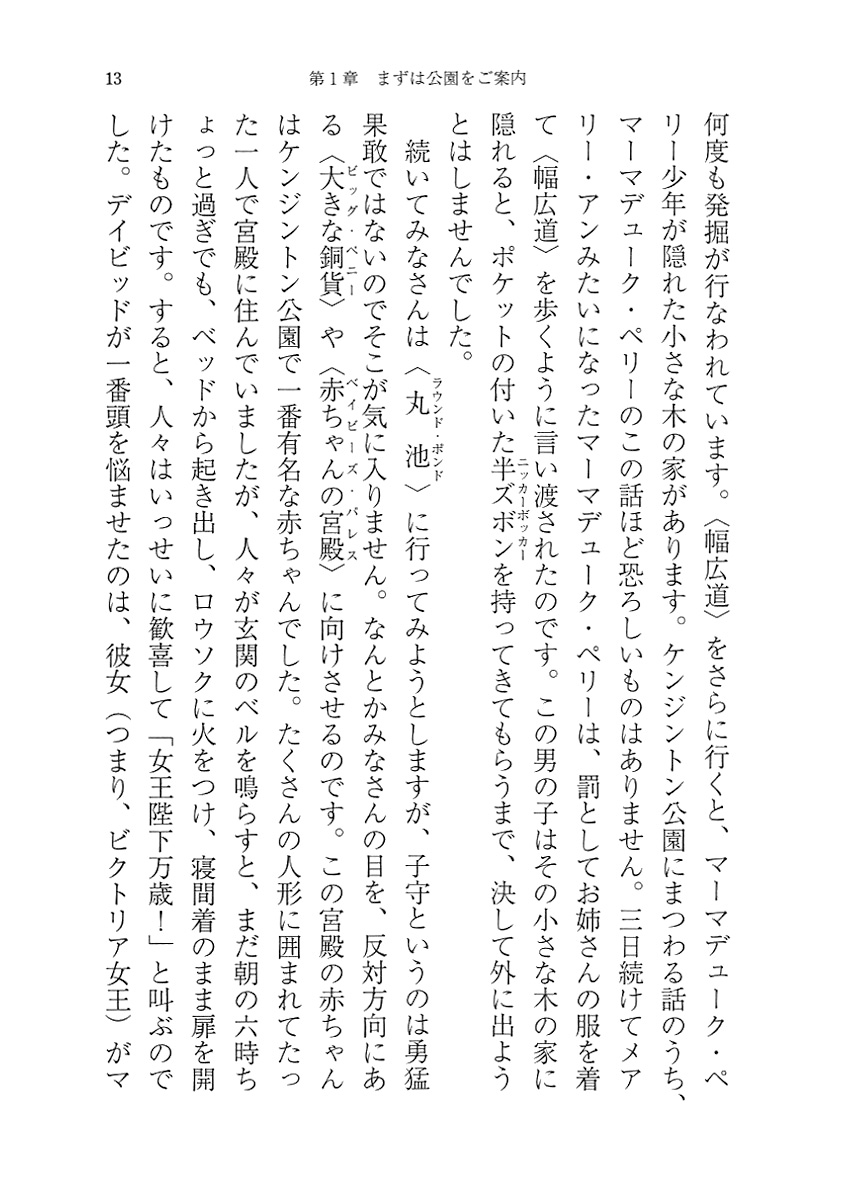 13
第1章　まずは公園をご案内
何度も発掘が行なわれています。〈幅広道〉をさらに行くと、マーマデューク・ペ
リー少年が隠れた小さな木の家があります。ケンジントン公園にまつわる話のうち、
マーマデューク・ペリーのこの話ほど恐ろしいものはありません。三日続けてメア
リー・アンみたいになったマーマデューク・ペリーは、罰としてお姉さんの服を着
て〈幅広道〉を歩くように言い渡されたのです。この男の子はその小さな木の家に
隠れると、ポケットの付いた半ズボンを持ってきてもらうまで、決して外に出よう
ニッカーボッカー
とはしませんでした。
　続いてみなさんは〈丸池〉に行ってみようとしますが、子守というのは勇猛
ラウンド・ポンド
果敢ではないのでそこが気に入りません。なんとかみなさんの目を、反対方向にあ
る〈大きな銅貨〉や〈赤ちゃんの宮殿〉に向けさせるのです。この宮殿の赤ちゃん
ビッグ・ペニー
ベイビーズ・パレス
はケンジントン公園で一番有名な赤ちゃんでした。たくさんの人形に囲まれてたっ
た一人で宮殿に住んでいましたが、人々が玄関のベルを鳴らすと、まだ朝の六時ち
ょっと過ぎでも、ベッドから起き出し、ロウソクに火をつけ、寝間着のまま扉を開
けたものです。すると、人々はいっせいに歓喜して「女王陛下万歳！」と叫ぶので
した。デイビッドが一番頭を悩ませたのは、彼女（つまり、ビクトリア女王）がマ